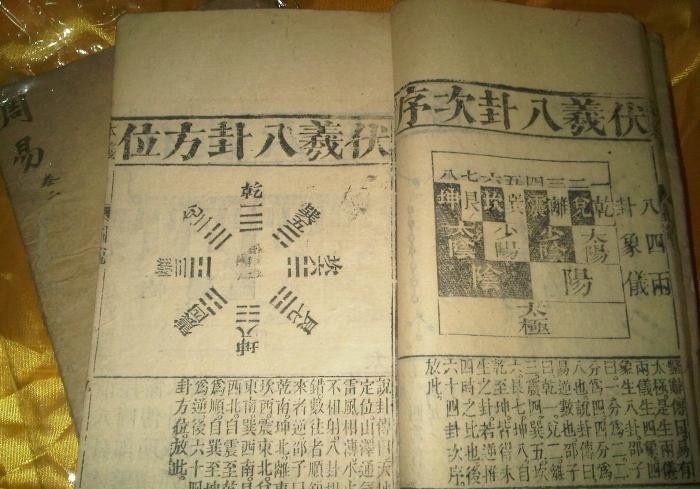 伏羲八卦次序
一二三四五六七八
乾兌離震巽坎艮坤
八卦
太陽少陰少陽太陰
四象
陽陰
兩儀
太極
繫辭傳曰易有
太極是生兩儀
兩儀生四象四
象生八卦邵子
曰一分爲二二
分爲四四分爲
八也說卦傳曰
易逆數也邵子
曰乾一兌二離
三震四巽五坎
六艮七坤八自
乾至坤皆得未
生之卦若逆推
四時之比也後
六十四卦次序
放此
伏羲八卦方位
乾一
巽五
坎六
艮七
坤八
震四
離三
兌二
說卦傳曰天地
定位山澤通氣
雷風相薄水火
不相射八卦相
錯數往者順知
來者逆邵子曰
乾南坤北離東
坎西震東北兌
東南巽西南艮
西北自震至乾
爲順自巽至坤
爲逆後六十四
卦方位放此
本義
周易
卷二